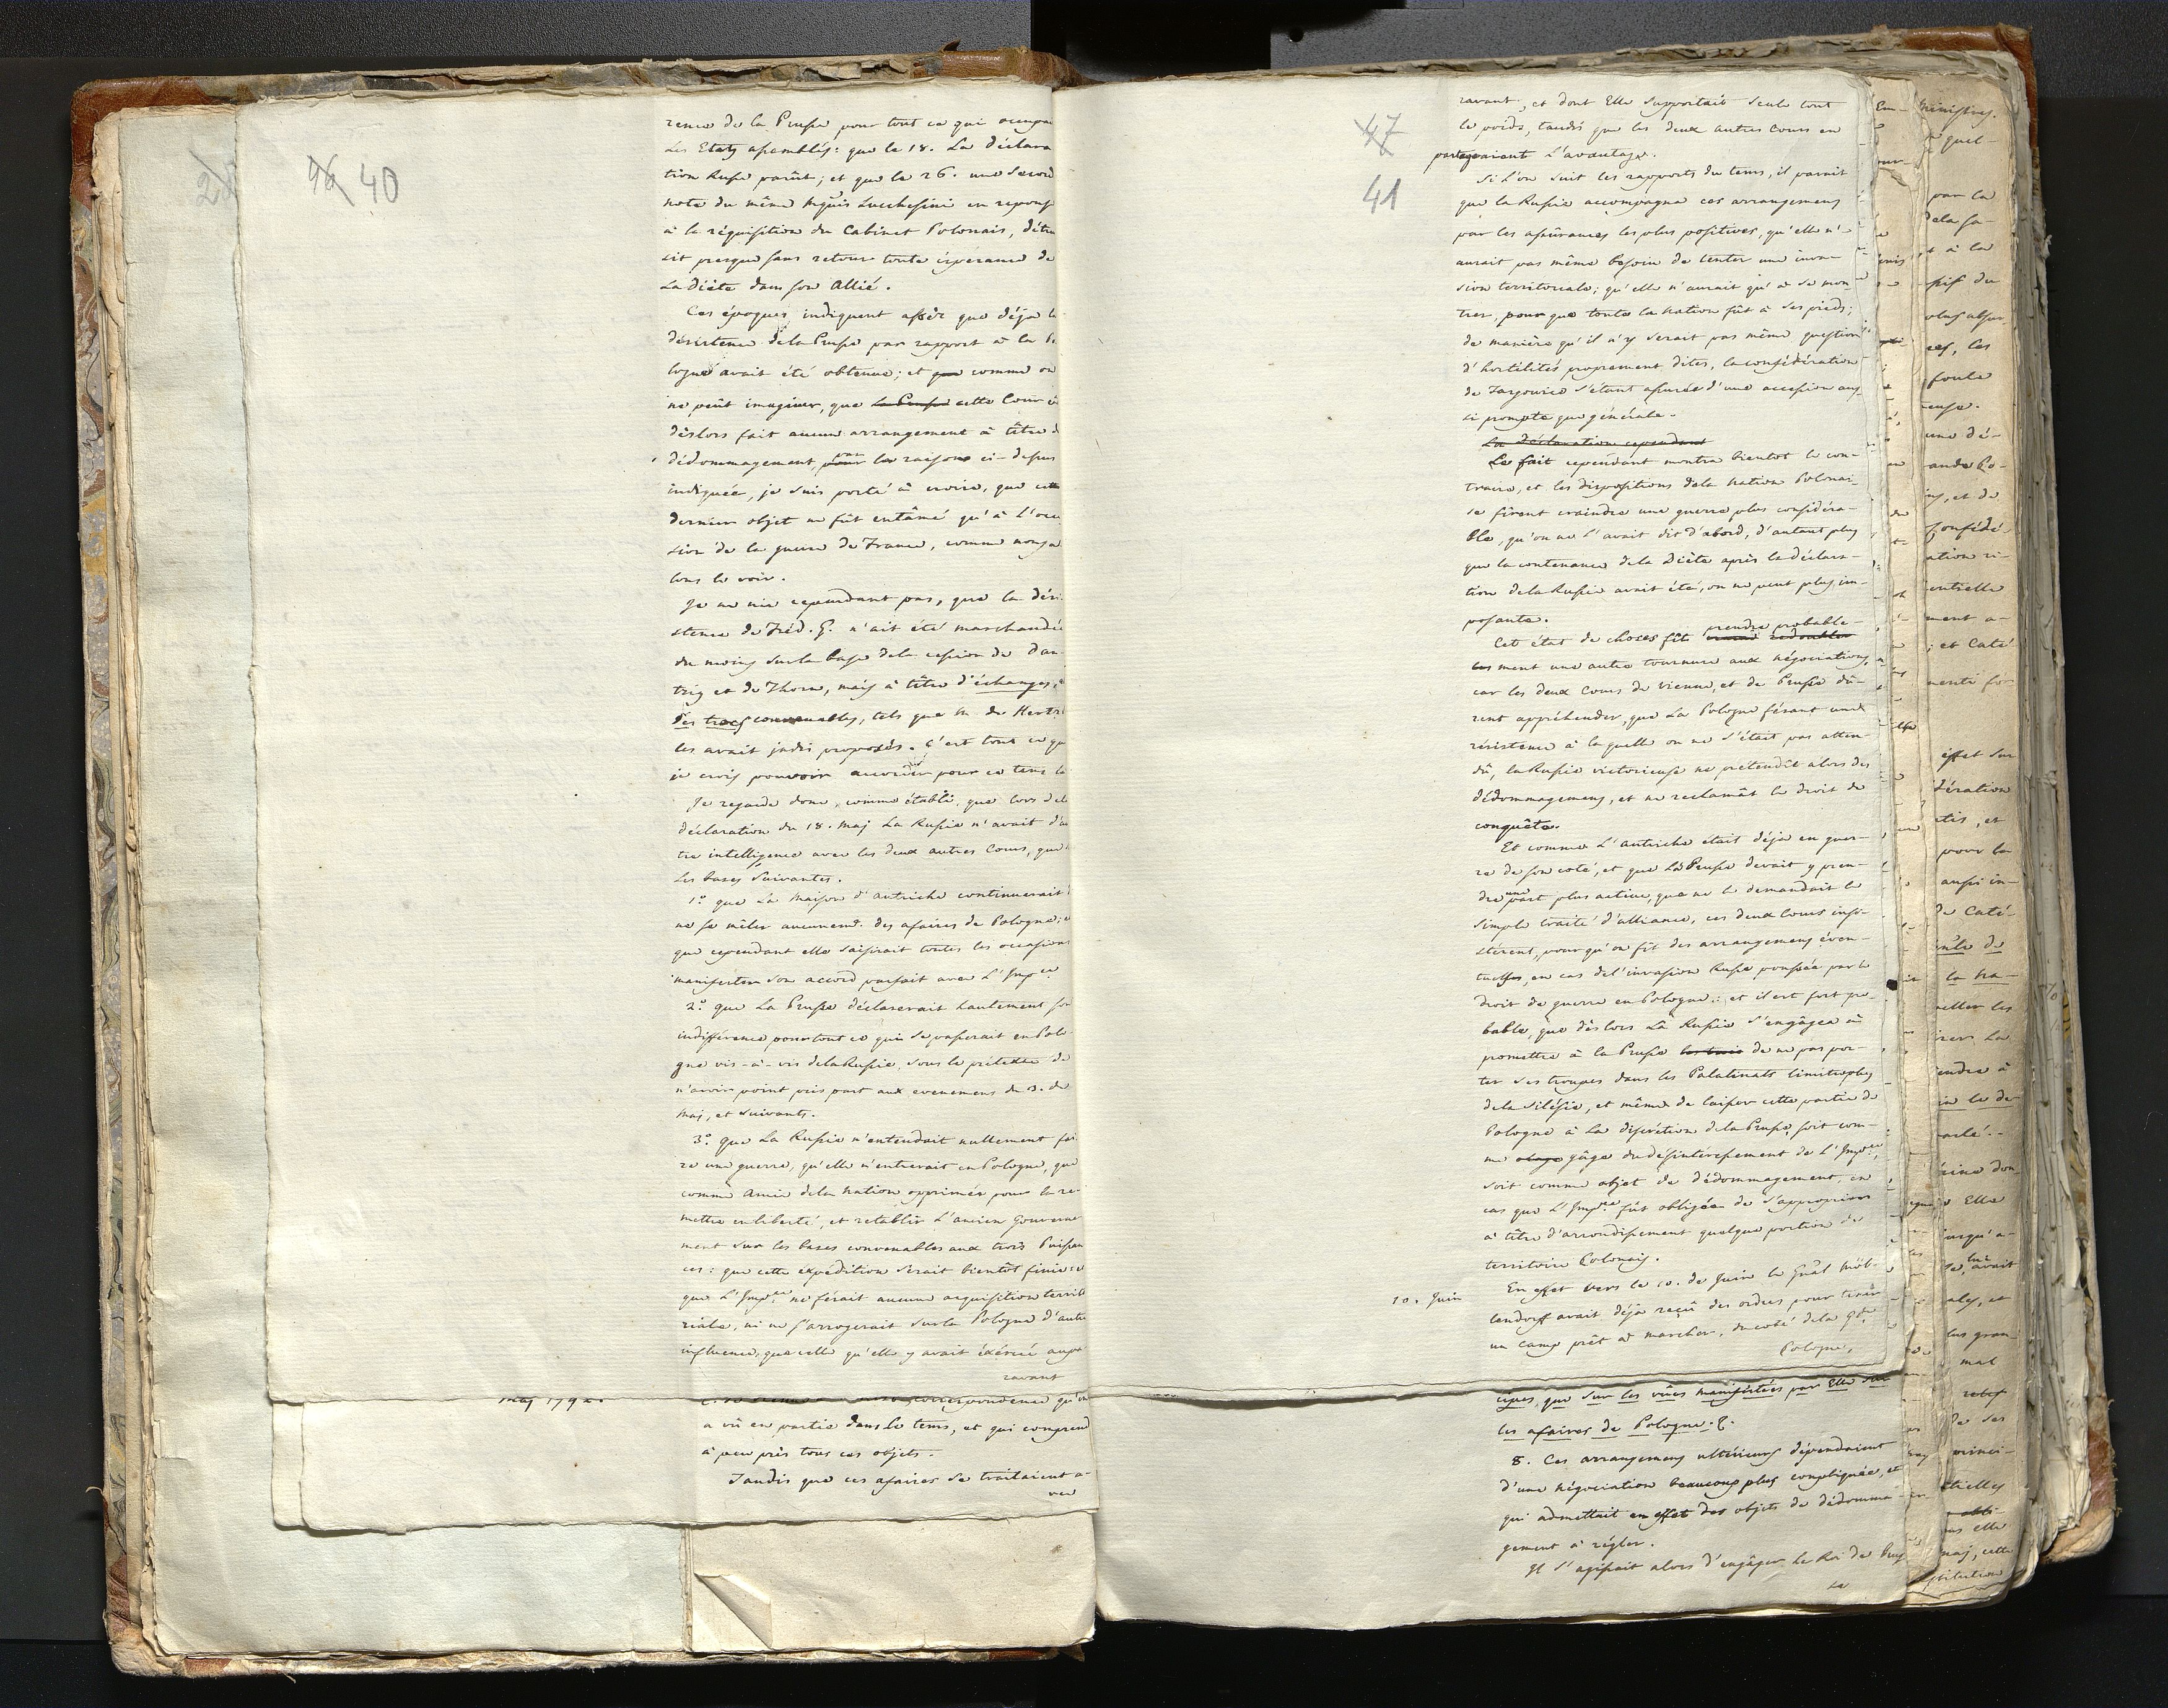 40
rence de la Prusse pour tout ce qui occupa
les Etats assemblés: que le 18. La déclara
tion Russe parût; et que le 26. une seconde
note du même Mquis Lucchesini en réponse
à la réquisition du Cabinet Polonais, détru
sit presque sans retour toute espérance de
La Diète dans son Allié.
Ces époques indiquent assez que déja la
désistence de la Prusse par rapport à la Po
logne avait été obtenue; et que comme on
ne peut imaginer, que la Prusse cette Cour
dèslors fait aucun arrangement à titre de
dédommagement, par les raisons ci-dessus
indiquée, je suis porté à croire, que cette
dernier objet ne fût entâmé qu'à l'occa
sion de la guerre de France, comme nous al
lons le voir.
Je ne nie cependant pas, que la dési
stence de Fréd. G. n'ait été marchandée
du moins sur la base de la cession de Dan
tzig et de Thorn, mais à titre d'échanges,
des trocs convenables, tels que M. de Hertz
les avait jadis proposés. C'est tout ce que
je crois pouvoir accorder pour ce tems là
Je regarde donc, comme établi, que lors de la
déclaration du 18. Maj La Russie n'avait d'au
tre intelligence avec les deux autres Cours, que
les bases suivantes.
1.° que La Maison d'Autriche continuerait
ne se mêler aucunemt. des afaires de Pologne; et
que cependant elle saisirait toutes les occasions
manifester son accord parfait avec L'Impce
2.° que La Prusse déclarerait hautement son
indifférence pour tout ce qui se passerait en Polo
gne vis-à-vis de la Russie, sous le prétexte de
n'avoir point pris part aux evenemens du 3. de
Maj, et suivants.
3.° que La Russie n'entendait nullement fai
re une guerre, qu'elle n'entrerait en Pologne, que
comme Amie de la Nation opprimée pour la re
mettre en liberté, et retablir L'ancien Gouverne
ment sur les bases convenables aux trois Puissan
ces: que cette expédition serait bientôt finie; et
que L'Impce ne ferait aucune acquisition territo
riale, ni ne s'arrogerait sur la Pologne d'autre
influence, que celle qu'elle y avait éxércé aupa
ravant
Maj 1792.
correspondence qu'on
a vû en partie dans le tems, et qui comprend
à peu près tous ces objets.
Tandis que ces afaires se traitaient a-
vec
47
41
ravant, et dont Elle supportait seule tout
le poids, tandis que les deux autres Cours en
partageaient L'avantage.
Si L'on suit les rapports du tems, il parait
que la Russie accompagna ces arrangemens
par les assûrances les plus positives, qu'elle n'
aurait pas même besoin de tenter une inva-
sion territoriale; qu'elle n'aurait qu'à se mon-
trer, pour que toute la Nation fût à ses pieds;
de manière qu'il n'y serait pas même question
d'hostilités proprement dites, la confédération
de Targovice s'étant assurée d'une accession aus-
si promte que générale.
La déclaration cependant
Le fait cependant montra bientôt le con-
traire, et les dispositions de la Nation Polonai-
se firent craindre une guerre plus considéra-
ble, qu'on ne l'avait dit d'abord, d'autant plus
que la contenance de la Diète après la déclara-
tion de la Russie avait été, on ne peut plus im-
posante.
Cet état de choses fit prendre probable-
ment une autre tournure aux négociations,
car les deux Cours de Vienne, et de Prusse dû-
rent appréhender, que La Pologne fésant une
résistence à laquelle on ne s'était pas atten-
dû, la Russie victorieuse ne prétendît alors des
dédommagemens, et ne reclamât le droit de
conquête.
Et comme L'Autriche était déja en guer-
re de son coté, et que La Prusse devait y pren-
dre une part plus active, que ne le demandait le
simple traité d'alliance, ces deux Cours insi-
stèrent, pour qu'on fit des arrangemens éven-
tuels, en cas de l'invasion Russe poussée par le
droit de guerre en Pologne: et il est fort pro-
bable, que dèslors La Russie s'engâgea à
promettre à la Prusse de ne pas por-
ter ses troupes dans les Palatinats limitrophes
de la Silésie, et même de laisser cette partie de
Pologne à La discrétion de la Prusse, soit com-
me otage gâge du desintéressement de L'Impce,
soit comme objet de dédommagement, en
cas que L'Impce fût obligée de s'approprier
à titre d'arrondissement quelque portion du
territoire Polonais.
10. Juin
En effet vers le 10. de Juin le Gnâl Möl-
lendorff avait déja reçû des ordres pour tenir
un camp prêt à marcher, du coté de la Gde
Pologne,
cipes, que sur les vûes manifestées par Elle sur
les afaires de Pologne.
8. Ces arrangemens ultérieurs dépendaient
d'une négociation beaucoup plus compliquée, et
qui admettait en effet des objets de dédomma-
gement à régler.
Il s'agissait alors d'engâger Le Roi de Prus
se